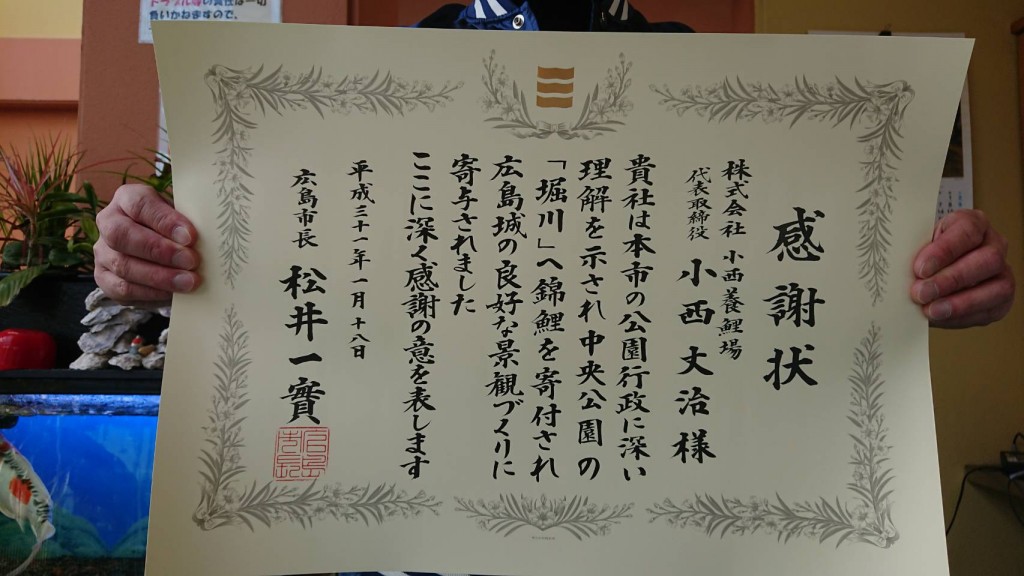 感謝状
株式会社 小西養鯉場
代表取締役 小西丈治様
貴社は本市の公園行政に深い
理解を示され中央公園の
「堀川」へ錦鯉を寄付され
広島城の良好な景観づくりに
寄与されました
ここに深く感謝の意を表します
平成三十一年一月十八日
広島市長 松井一實
トラブル等の責任は一切
負いかねますので。